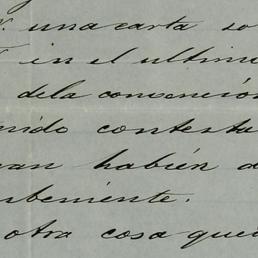 una carta so
in el ultimo
dela convención
nido contesta
ran habien d
rbemiente.
otra cosa que